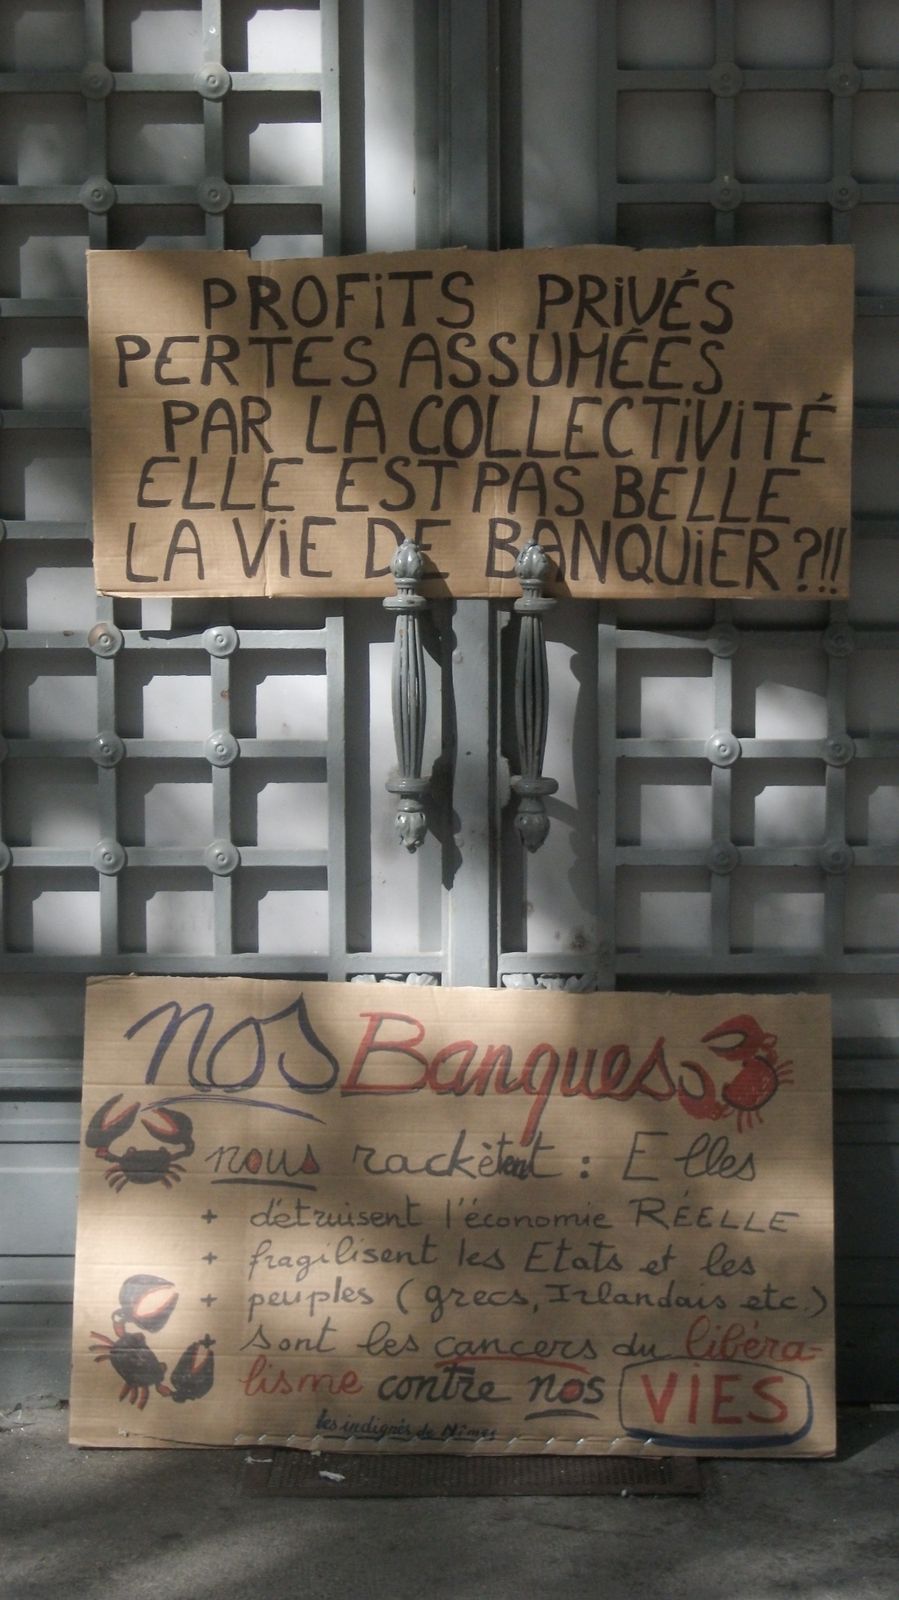 PROFiTS PRiVÉS
PERTES ASSUMÉES
PAR LA COLLECTiViTÉ
ELLE EST PAS BELLE
LA ViE DE BANQUiER ?!!!
nos Banques
nous rackètent : Elles
+ détruisent l'économie RÉELLE
+ fragilisent les Etats et les
+ peuples (grecs, Irlandais etc.)
+ sont les cancers du libéra-
lisme contre nos VIES
les indignés de Nîmes